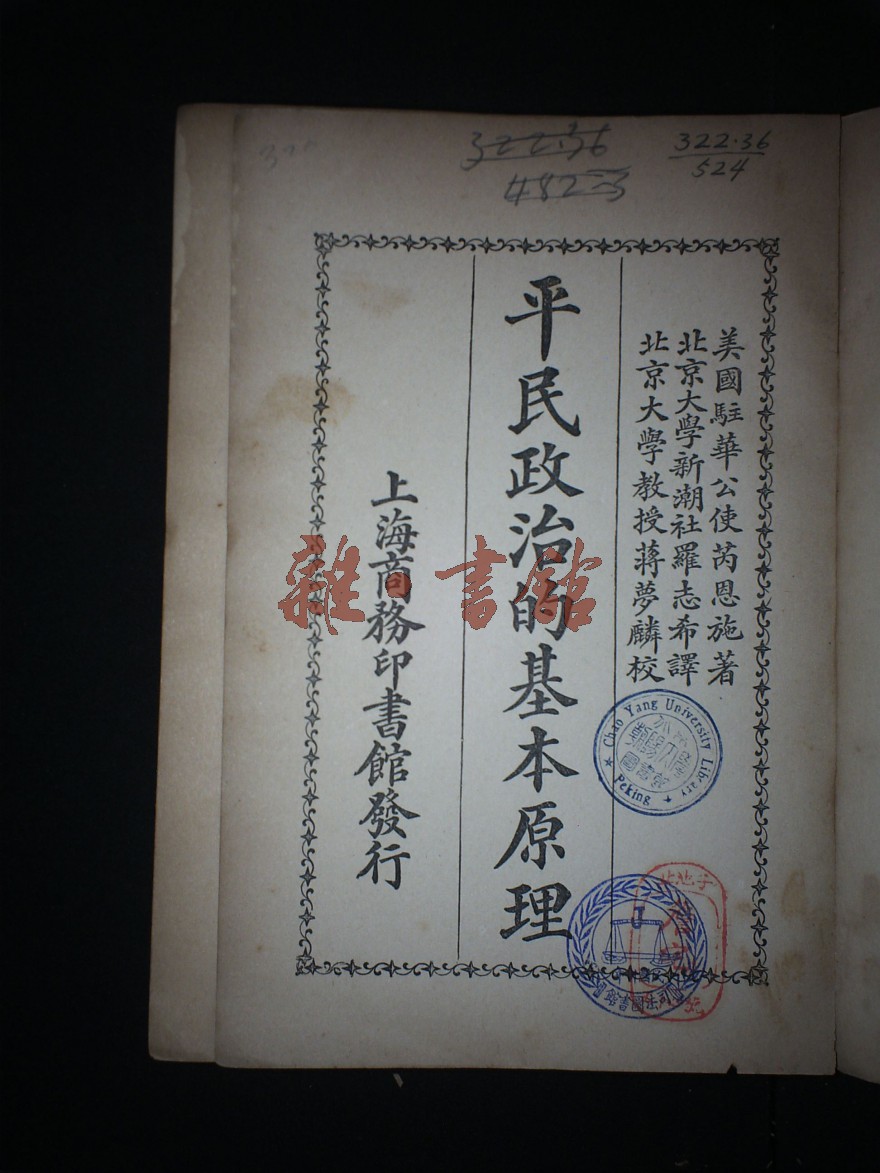 322.36
482.3
322.36
524
美國駐華公使芮恩施著
北京大學新潮社羅志希譯
北京大學教授蔣夢麟校
平民政治的基本原理
上海商務印書館發行
雜·書館
Chao Yang University Library
Peking